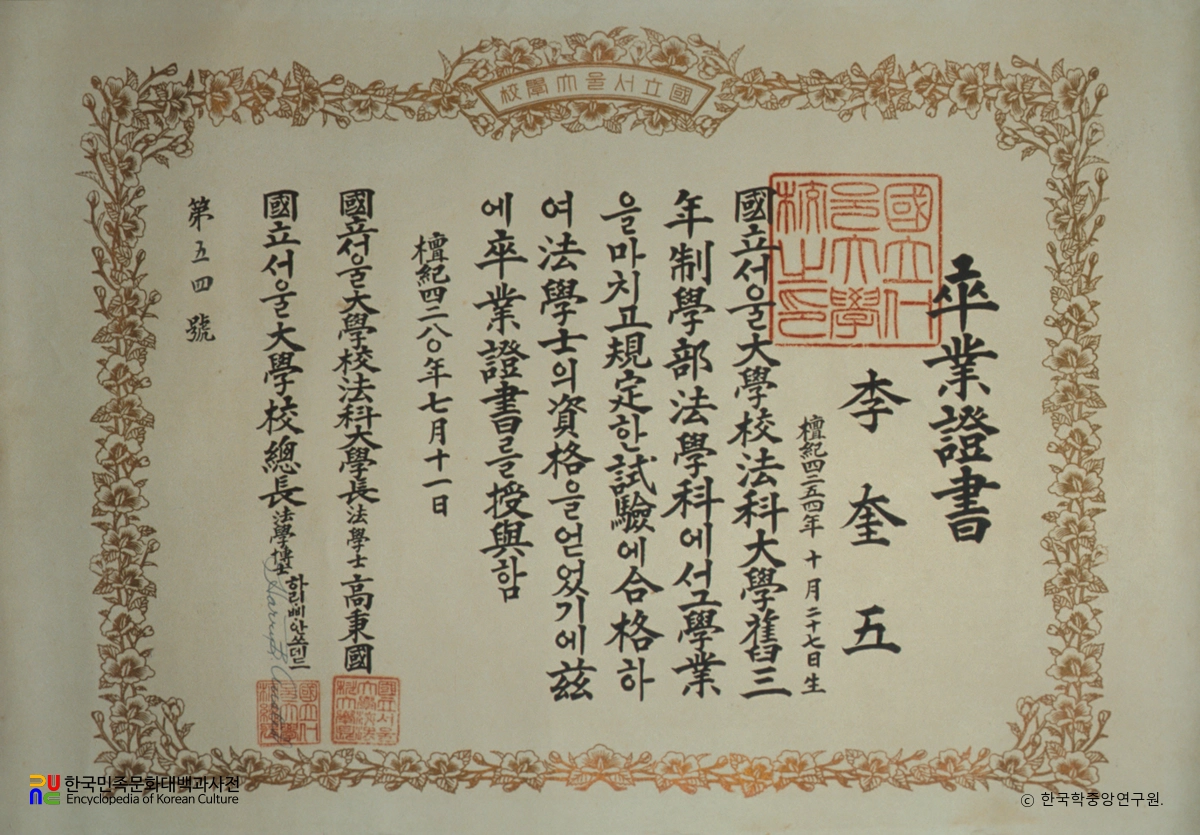 國立서울大學校
卒業證書
李奎五
檀紀四二五四年 十月二十七日生
國立서울大學校法科大學舊三
年制學部法學科에서그學業
을마치고規定한試驗에合格하
여法學士의資格을얻었기에玆
에卒業證書를授與함
檀紀四二八〇年七月十一日
國立서울大學校法科大學長 法學士 高秉國
國立서울大學校總長 法學博士 하리삐안쓰텓드
第五四號
한국민족문화대백과사전
Encyclopedia of Korean Culture
© 한국학중앙연구원.